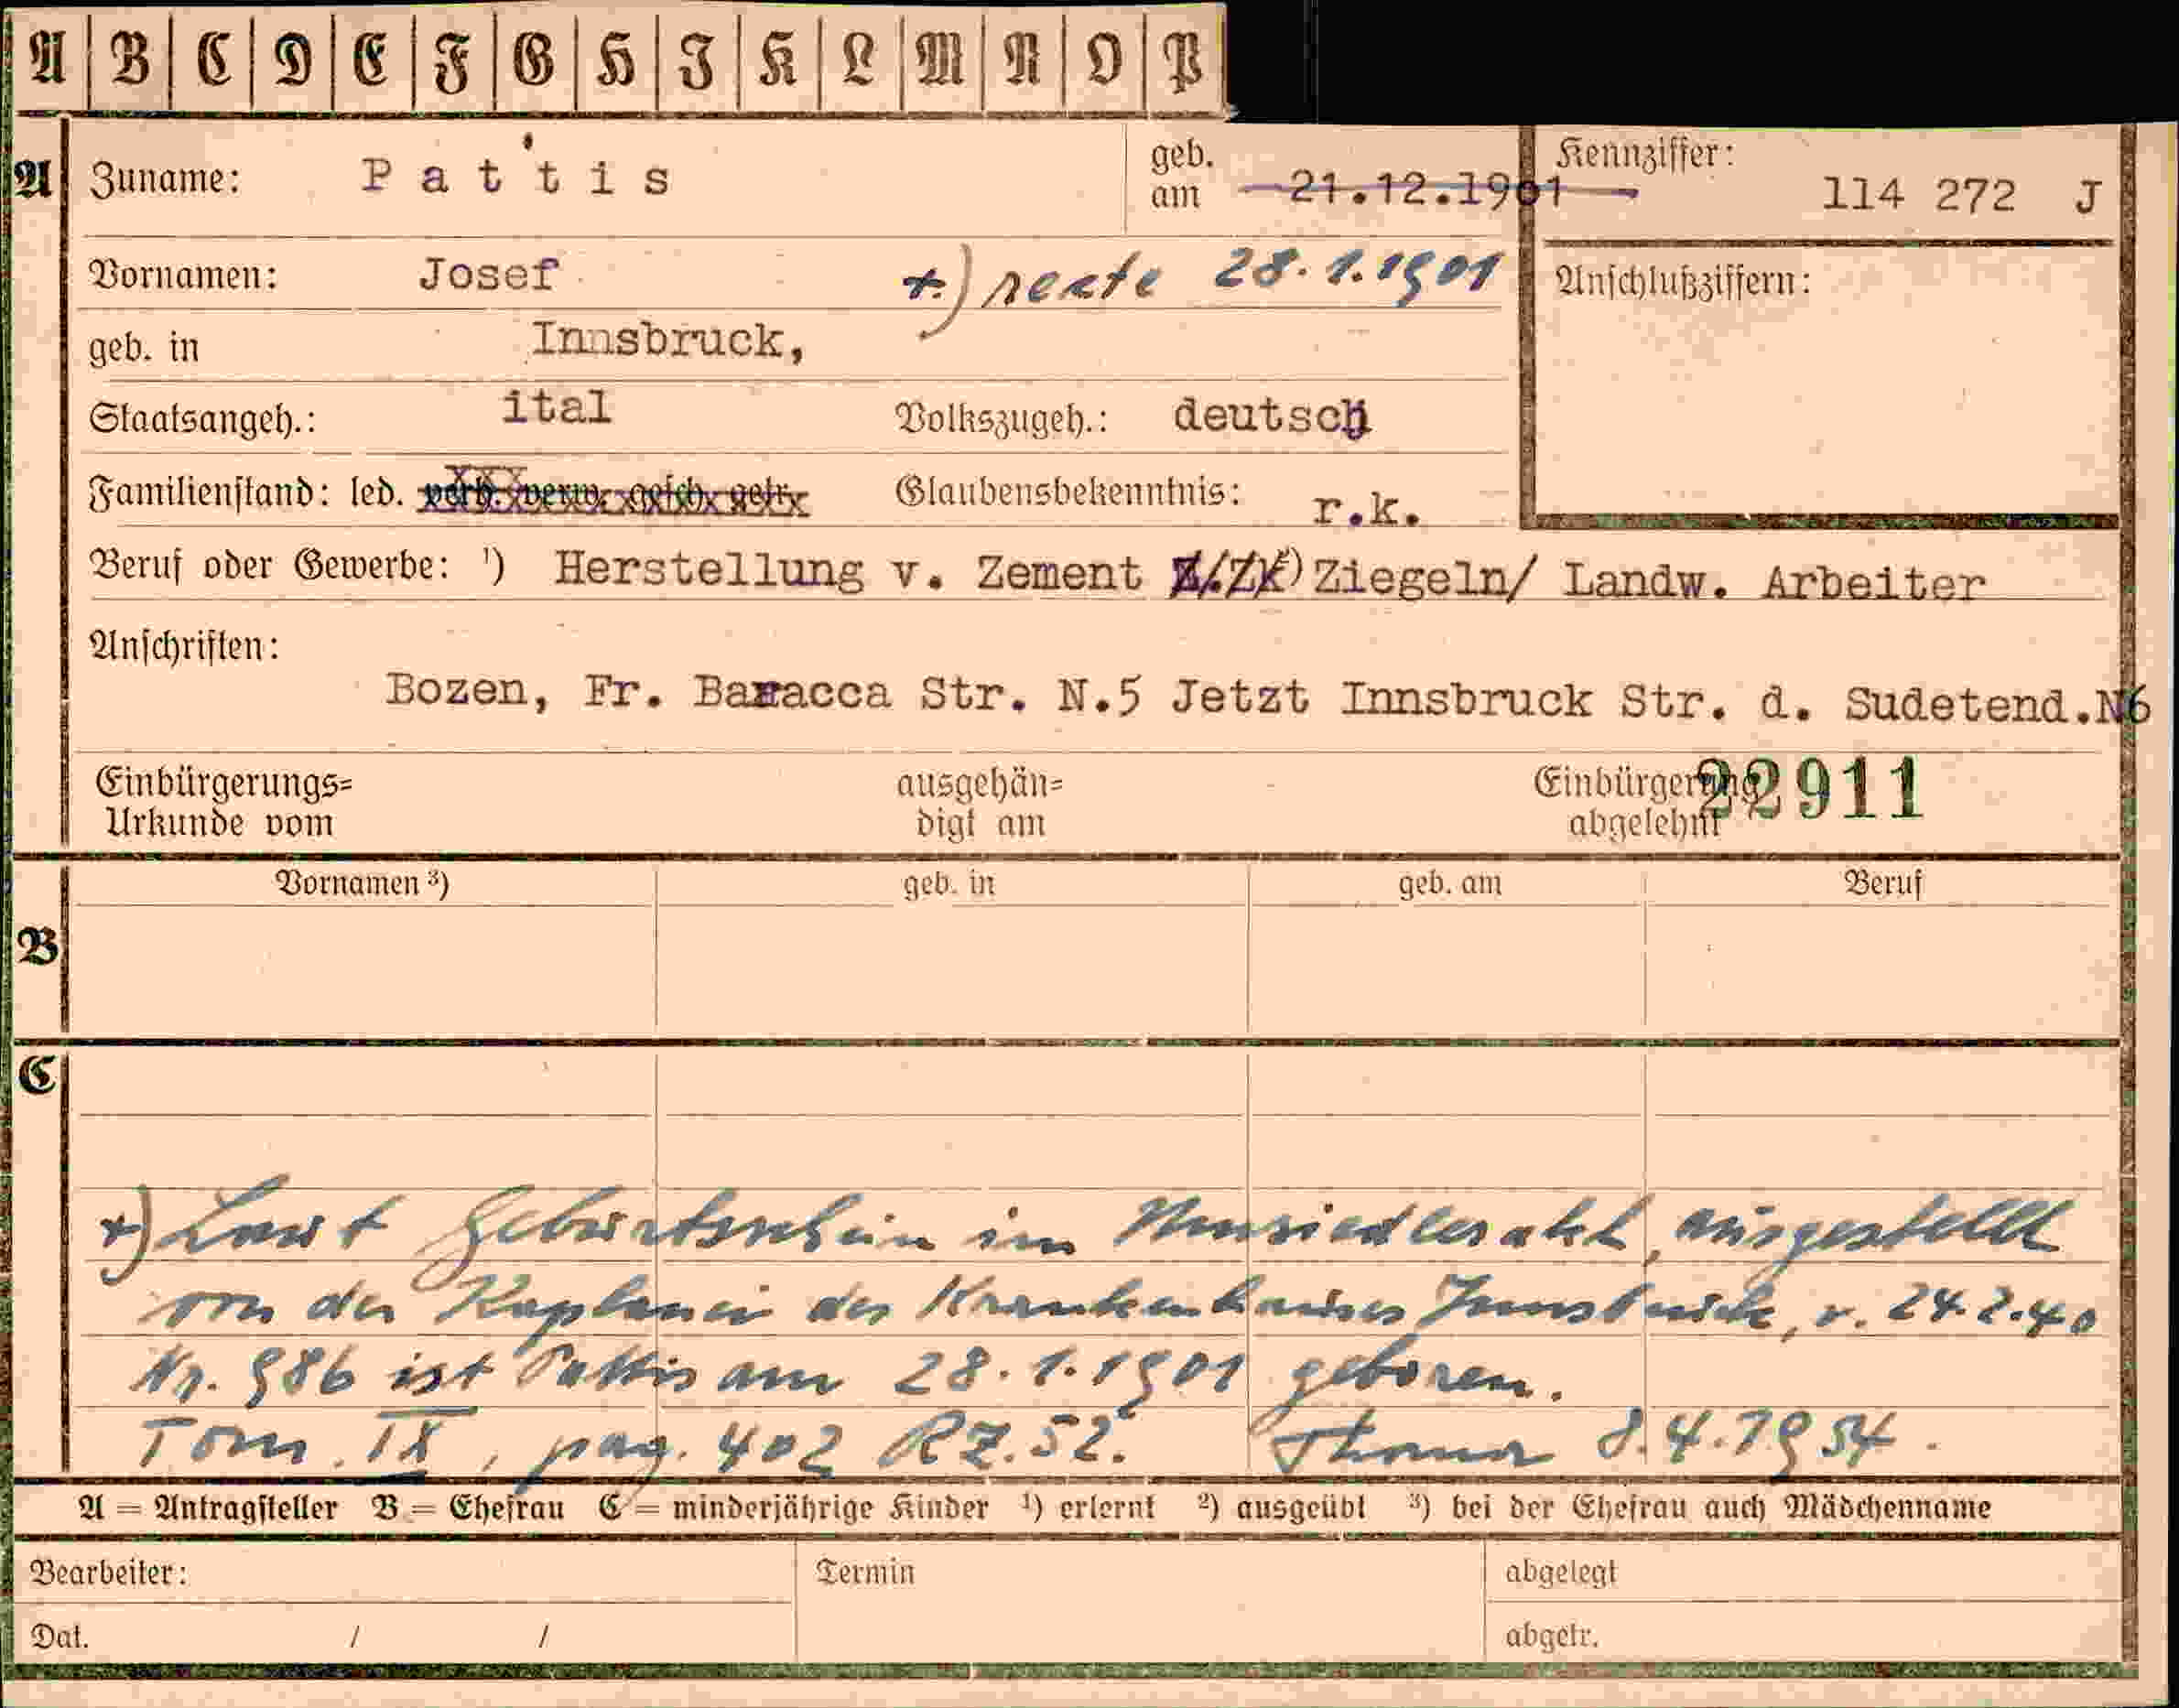 A B C D E F G H I K L M N O P
A Zuname: Pattis geb. am 21.12.1901 Kennziffer: 114 272 J
Vornamen: Josef +) recte 28.1.1901 Anschlußziffern:
geb. in Innsbruck,
Staatsangeh.: ital Volkszugeh.: deutsch
Familienstand: led. verh. verw. gesch. getr. Glaubensbekenntnis: r.k.
Beruf oder Gewerbe: ¹) Herstellung v. Zement Ziegeln/ Landw. Arbeiter
Anschriften:
Bozen, Fr. Baracca Str. N.5 Jetzt Innsbruck Str. d. Sudetend.N6
Einbürgerungs= ausgehän= Einbürgerung 22911
Urkunde vom digt am abgelehnt
Vornamen ³) geb. in geb. am Beruf
B
C
+) Laut Geburtsschein im Umsiedlerakt, ausgestellt
von der Kaplanei des Krankenhauses Innsbruck, v. 24.2.40
Nr. 986 ist Pattis am 28.1.1901 geboren.
Tom. IX, pag. 402 RZ.52. 8.4.1954.
A = Antragsteller B = Ehefrau C = minderjährige Kinder ¹) erlernt ²) ausgeübt ³) bei der Ehefrau auch Mädchenname
Bearbeiter: Termin abgelegt
Dat. / / abgetr.